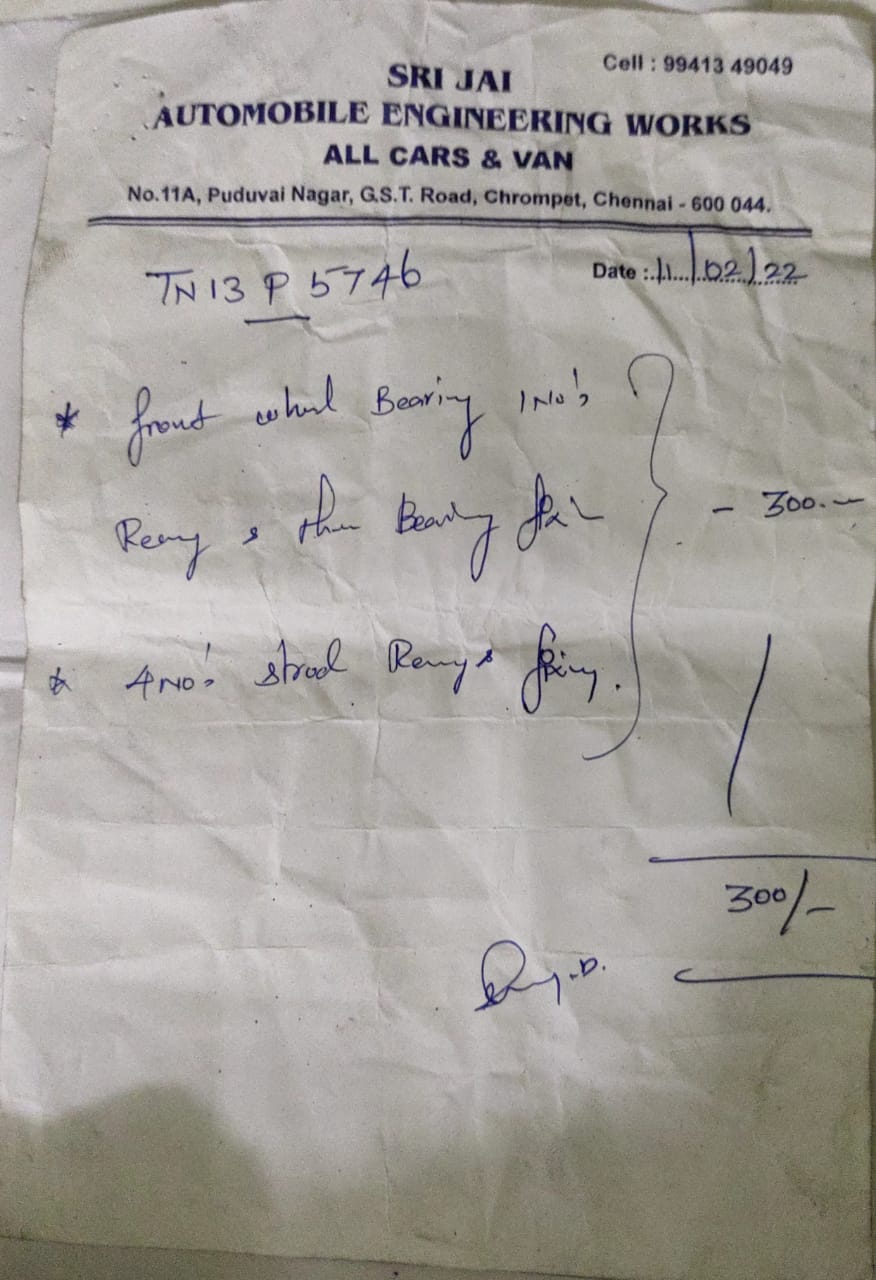 Cell : 99413 49049
SRI JAI
AUTOMOBILE ENGINEERING WORKS
ALL CARS & VAN
No.11A, Puduvai Nagar, G.S.T. Road, Chrompet, Chennai - 600 044.
TN 13 P 5746
Date : 11/02/22
* front wheel Bearing 1 No's
& Bearing
- 300.—
* 4 No's
300/-